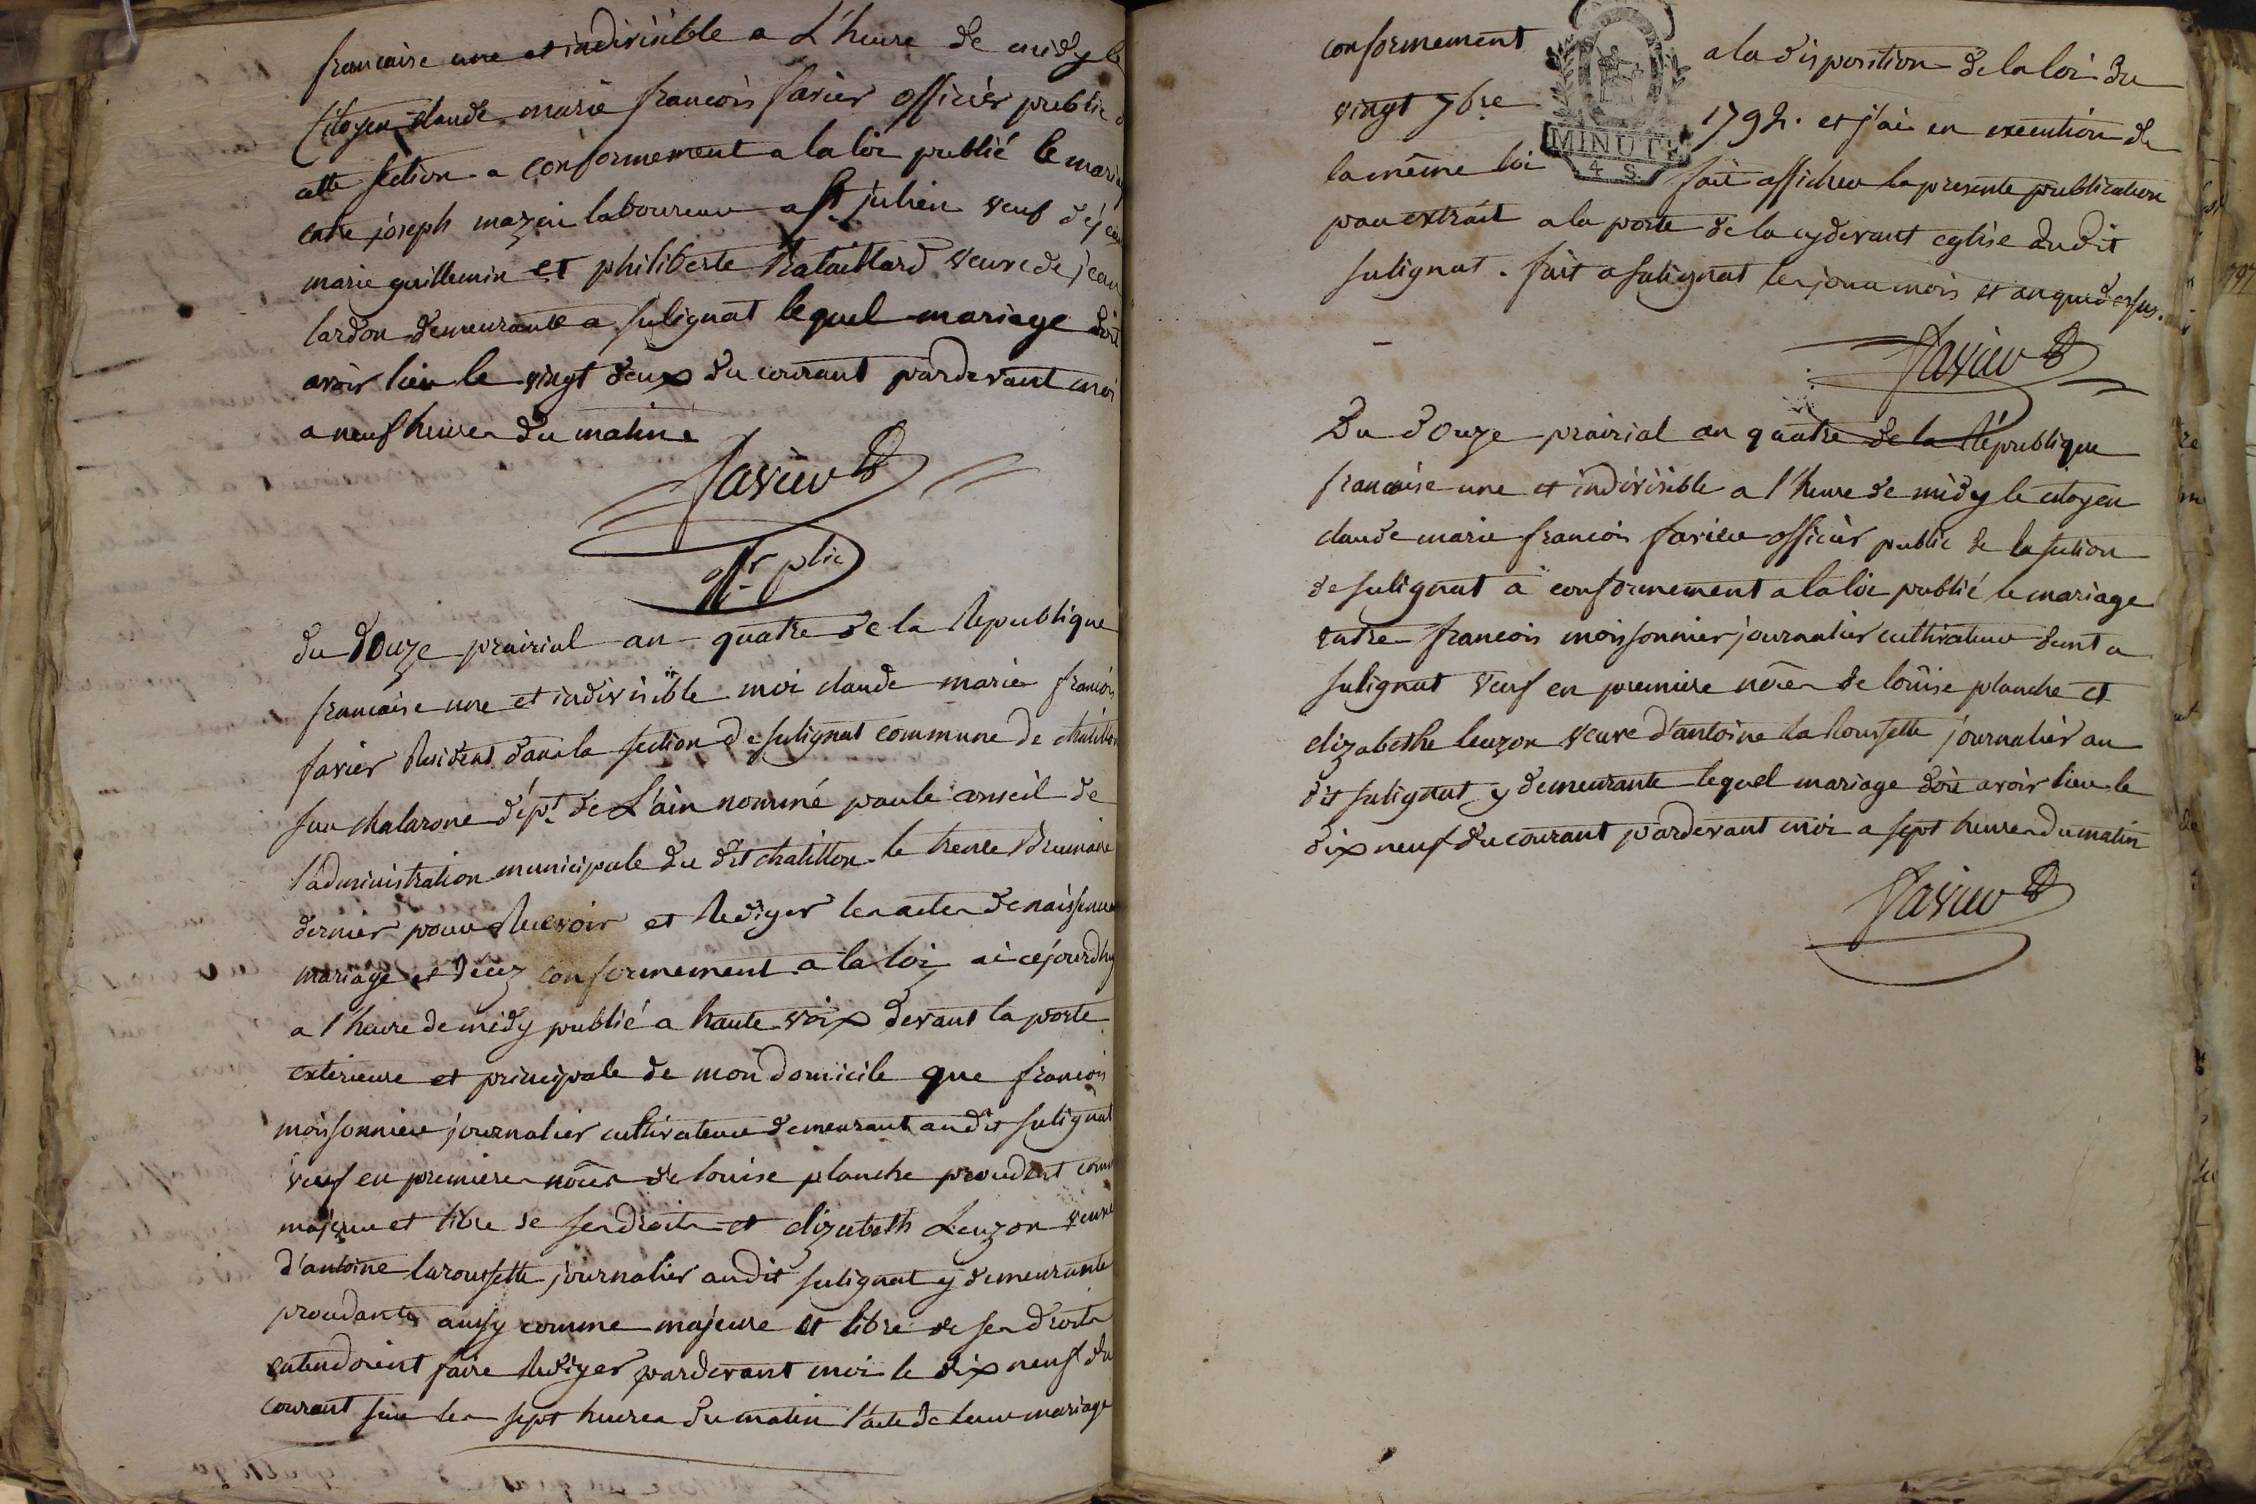 francaise une et indivisible a L'heure de midy le
Citoyen claude marie francois favier officier public
cette section a conformement a la loi publié le mariage
entre joseph mazui laboureur a St julien veuf de
marie guillemin et philiberte Bataillard veuve de jean
lardon demeurante a sulignat lequel mariage doit
avoir lieu le vingt deux du courant pardevant moi
a neuf heures du matin
favier
offr plic
du douze prairial an quatre de la Republique
francaise une et indivisible moi claude marie francois
favier Resident dans la section de sulignat commune de chatillon
sur chalarone dépt de L'ain nommé par le conseil de
l'administration municipale du dit chatillon le trente Brumaire
dernier pour Recevoir et Rediger les actes de naissance
mariage et décez conformement a la loi ai cejourdhuy
a l'heure de midy publié a haute voix devant la porte
exterieure et principale de mon domicile que francois
moissonnier journalier cultivateur demeurant audit sulignat
veuf en premieres nôces de louise planche procedant comme
majeur et libre de ses droits et elizabeth Leuzon veuve
d'antoine larousette journalier audit sulignat y demeurante
procedante aussy comme majeure et libre de ses droits
entendoient faire Rediger pardevant moi le dix neuf du
courant sur les sept heures du matin l'acte de leur mariage
conformement a la disposition de la loi du
vingt 7bre 1792. et j'ai en execution de
la même loi fait afficher la presente publication
par extrait a la porte de la cydevant eglise dudit
sulignat. fait a sulignat les jour mois et an que dessus.
MINUTE
4 S.
favier
Du douze prairial an quatre de la République
francaise une et indivisible a l'heure de midy le citoyen
claude marie francois favier officier public de la section
de sulignat a conformement a la loi publié le mariage
entre francois moissonnier journalier cultivateur demt a
sulignat veuf en premiere nôces de louise planche et
elizabethe leuzon veuve d'antoine la Roussette journalier au
dit sulignat y demeurante lequel mariage doit avoir lieu le
dix neuf du courant pardevant moi a sept heures du matin
favier